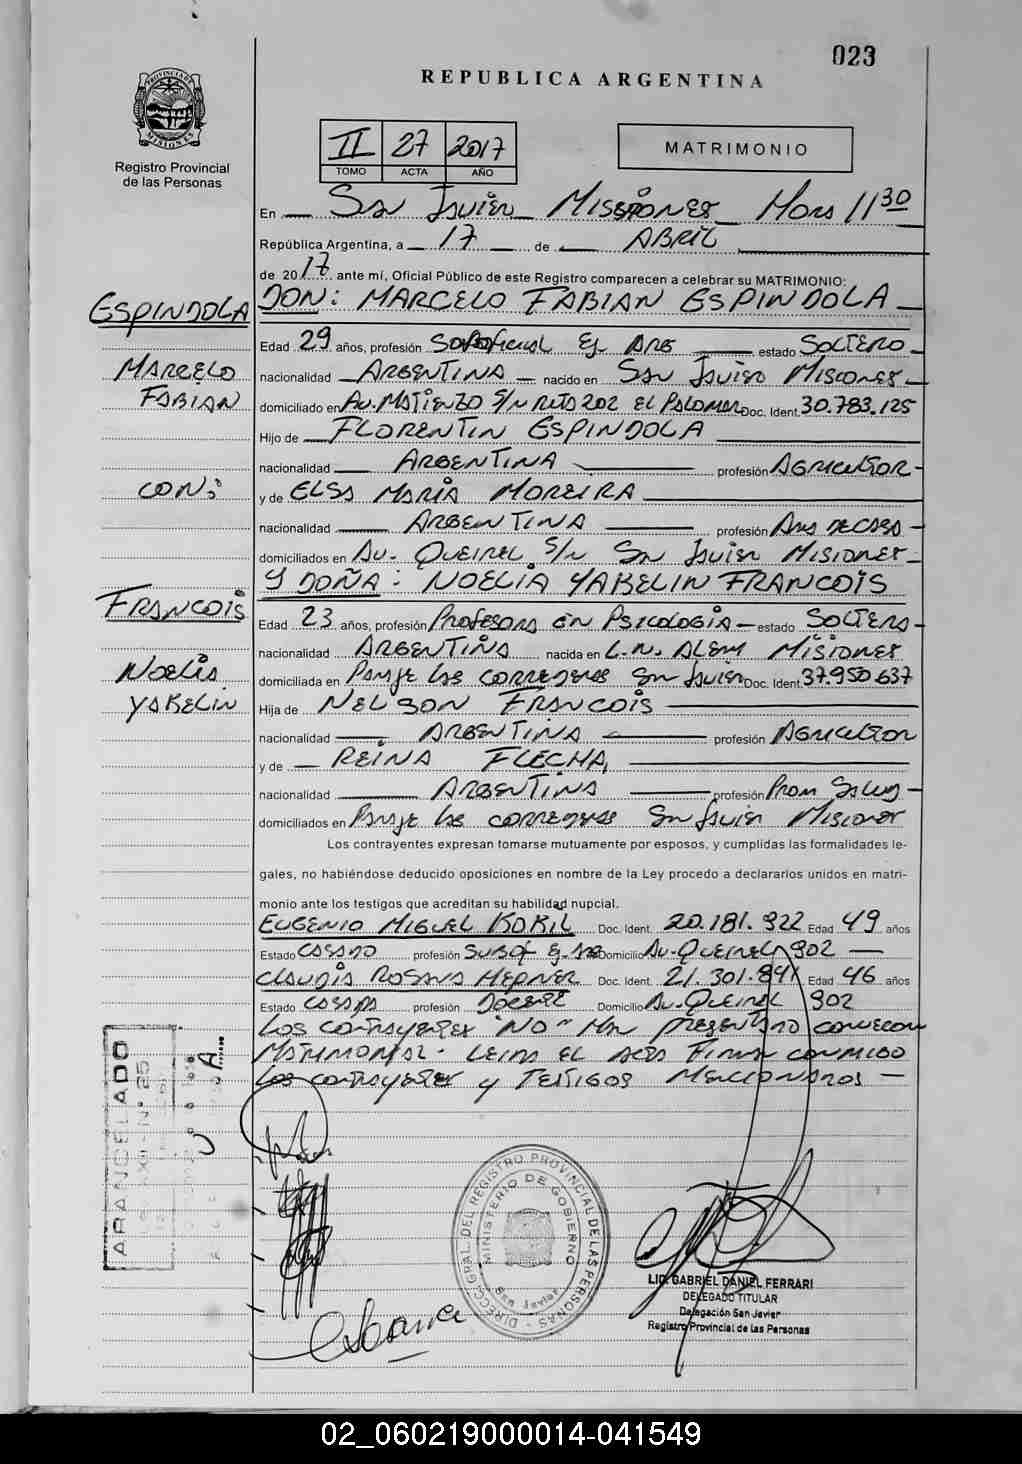 023
REPUBLICA ARGENTINA
PROVINCIA DE MISIONES
Registro Provincial
de las Personas
II 27 2017
TOMO ACTA AÑO
MATRIMONIO
En San Javier Misiones Hora 11 30
República Argentina, a 17 de ABRIL
de 2017 ante mí, Oficial Público de este Registro comparecen a celebrar su MATRIMONIO:
ESPINDOLA
MARCELO
FABIAN
CON:
FRANCOIS
NOELIA
YAKELIN
DON: MARCELO FABIAN ESPINDOLA
Edad 29 años, profesión Suboficial Ej. ARG estado SOLTERO
nacionalidad ARGENTINA nacido en San Javier Misiones
domiciliado en Av. MATIENZO S/N RUTA 202 EL PALOMAR Doc. Ident. 30.783.125
Hijo de FLORENTIN ESPINDOLA
nacionalidad ARGENTINA profesión AGRICULTOR
y de ELSA MARIA MOREIRA
nacionalidad ARGENTINA profesión Ama DE CASA
domiciliados en Av. QUEIREL S/N San Javier MISIONES
Y DOÑA: NOELIA YAKELIN FRANCOIS
Edad 23 años, profesión Profesora en Psicología estado SOLTERA
nacionalidad ARGENTINA nacida en L.N. ALEM MISIONES
domiciliada en Paraje las correderas San Javier Doc. Ident. 37.950.637
Hija de NELSON FRANCOIS
nacionalidad ARGENTINA profesión AGRICULTOR
y de REINA FLECHA
nacionalidad ARGENTINA profesión Prom Salud
domiciliados en Paraje las correderas San Javier Misiones
Los contrayentes expresan tomarse mutuamente por esposos, y cumplidas las formalidades le-
gales, no habiéndose deducido oposiciones en nombre de la Ley procedo a declararlos unidos en matri-
monio ante los testigos que acreditan su habilidad nupcial.
EUGENIO MIGUEL KORIL Doc. Ident. 20.181.922 Edad 49 años
Estado CASADO profesión SUBOF Ej. Domicilio Av. QUEIREL 902
CLAUDIA ROSANA HEPNER Doc. Ident. 21.301.841 Edad 46 años
Estado CASADA profesión DOCENTE Domicilio Av. QUEIREL 902
Los contrayentes "NO" Han presentado convención
MATRIMONIAL. LEIDA EL ACTA Firman CONMIGO
Los contrayentes y TESTIGOS MENCIONADOS
ARANCELADO
LEY XXII - Nº 25
DIRECC. GRAL. DEL REGISTRO PROVINCIAL DE LAS PERSONAS
MINISTERIO DE GOBIERNO
San Javier
LIC. GABRIEL DANIEL FERRARI
DELEGADO TITULAR
Delegación San Javier
Registro Provincial de las Personas
02_060219000014-041549